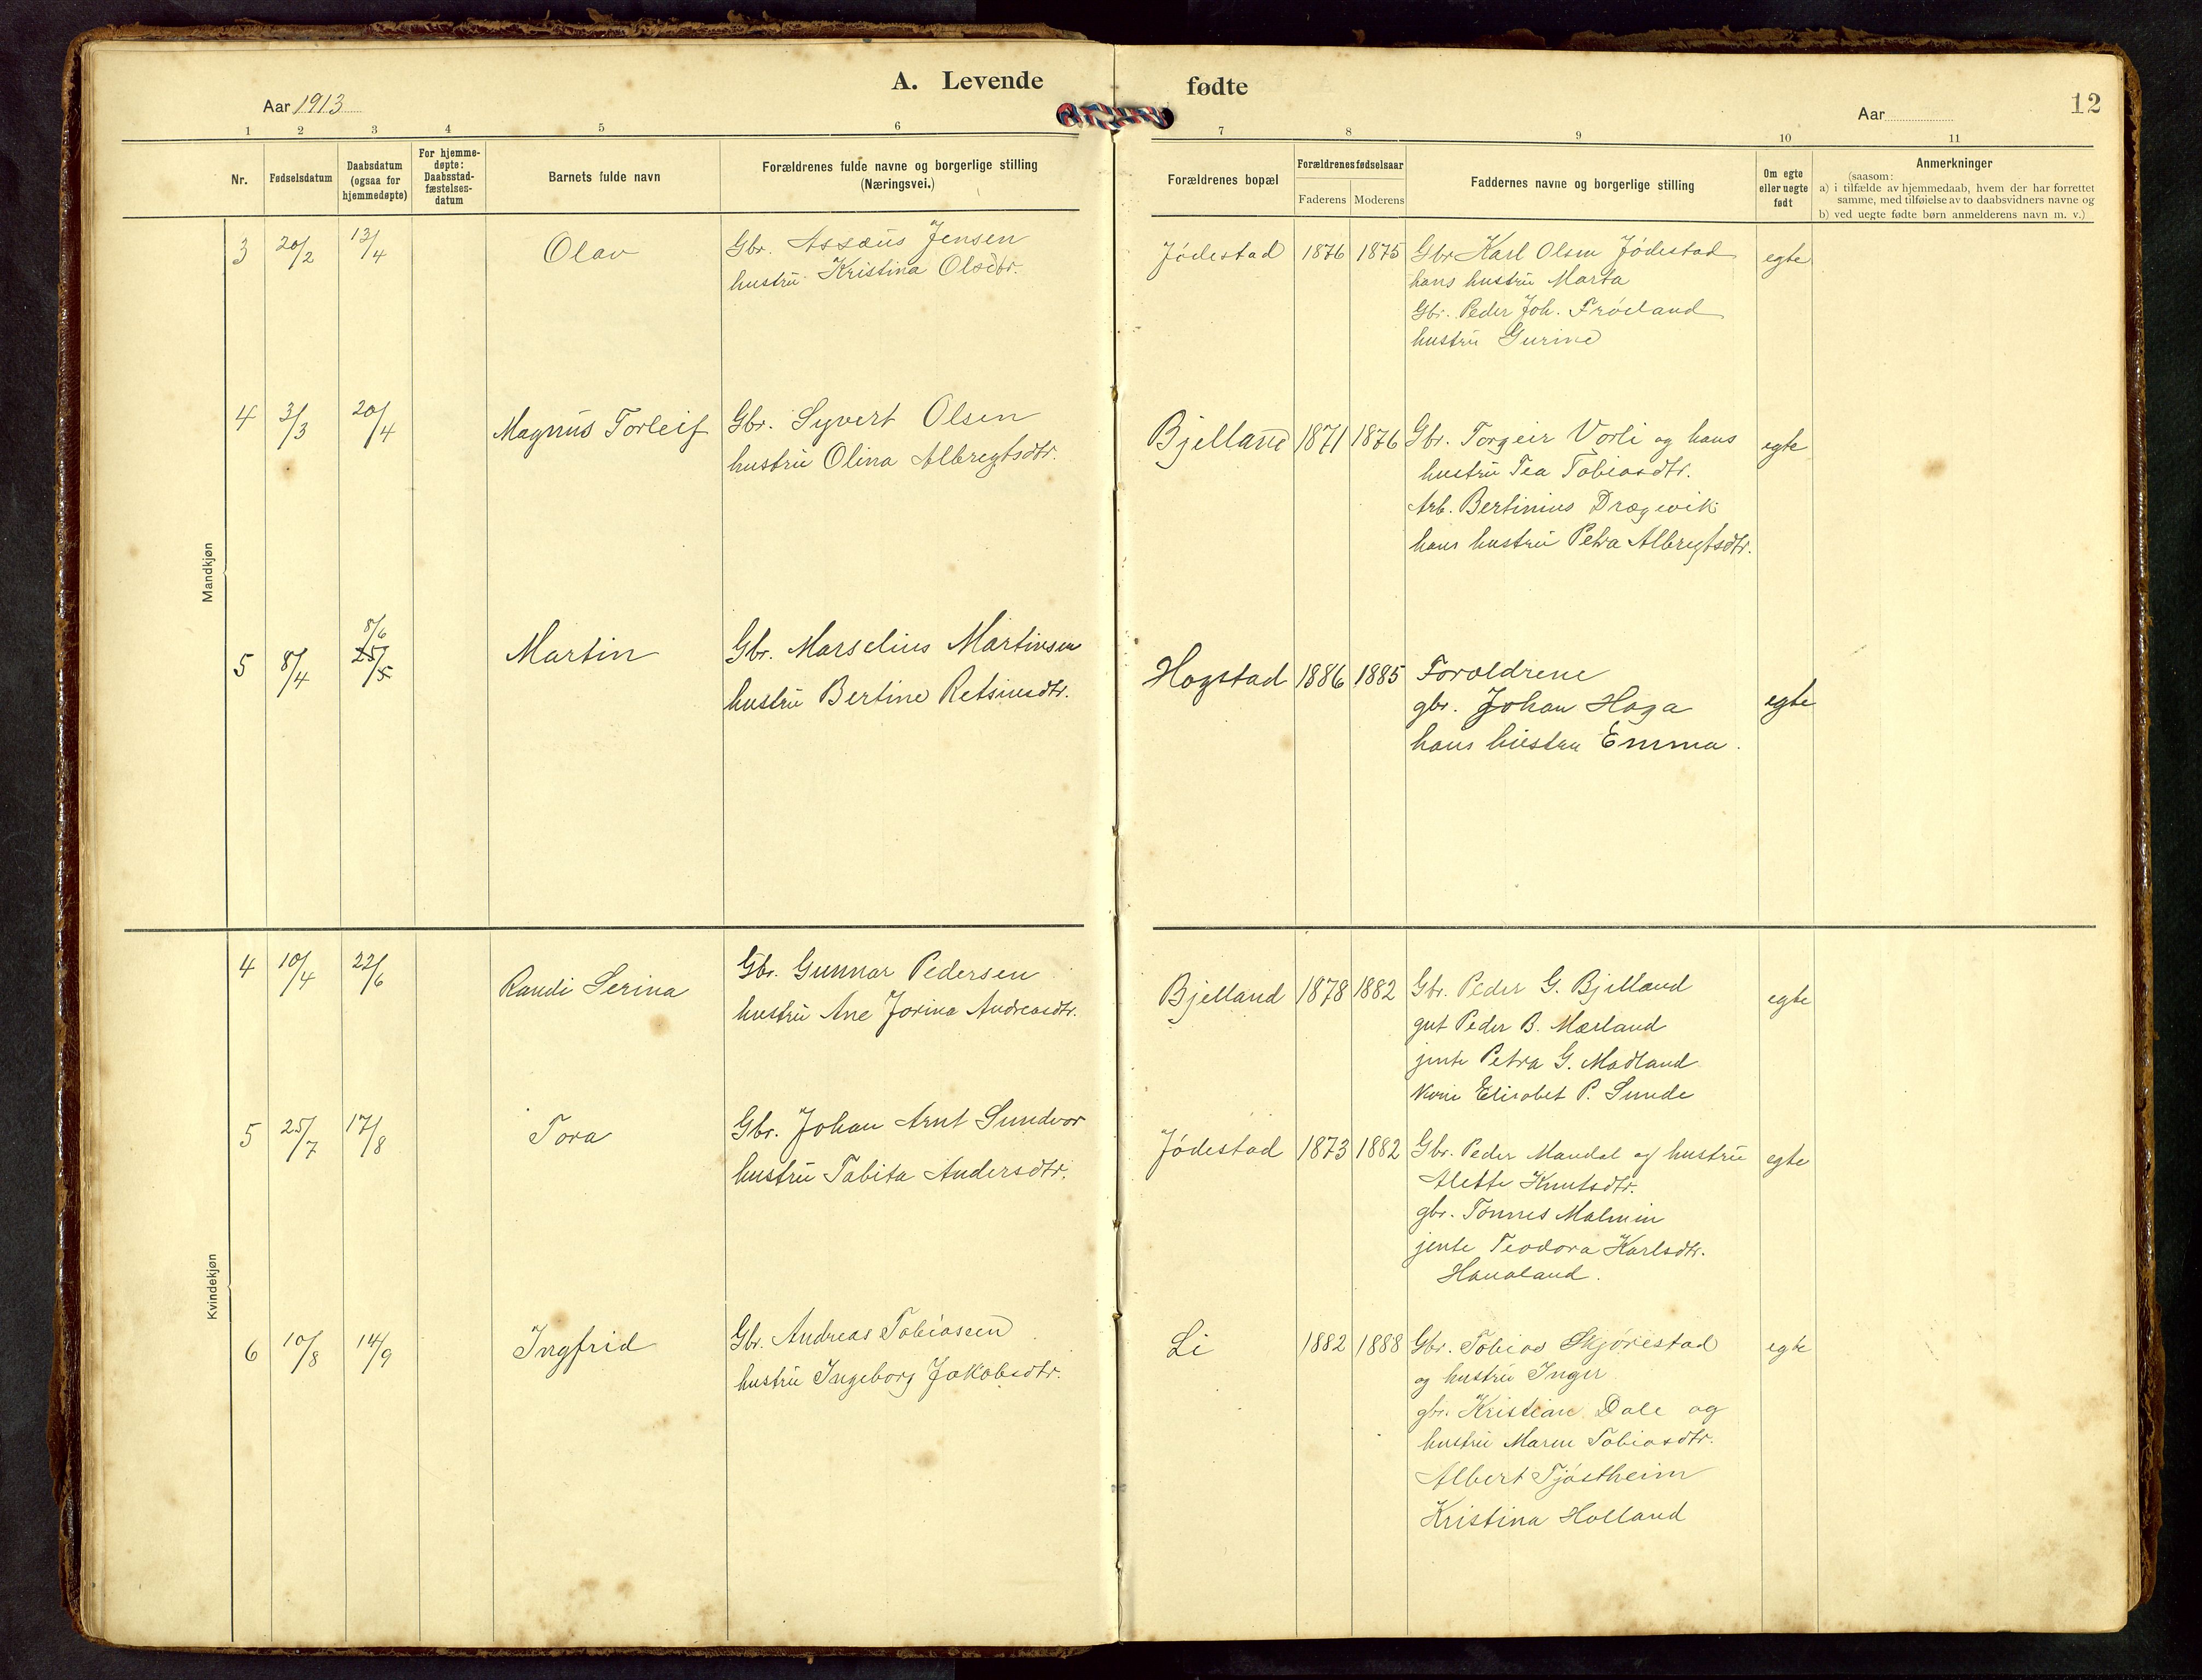 A. Levende fødte
Aar 1913
Aar
12
1 2 3 4 5 6 7 8 9 10 11
Nr.
Fødselsdatum
Daabsdatum
(ogsaa for
hjemmedøpte)
For hjemme-
døpte:
Daabsstad-
fæstelses-
datum
Barnets fulde navn
Forældrenes fulde navne og borgerlige stilling
(Næringsvei.)
Forældrenes bopæl
Forældrenes fødselsaar
Faderens Moderens
Faddernes navne og borgerlige stilling
Om egte
eller uegte
født
Anmerkninger
(saasom:
a) i tilfælde av hjemmedaab, hvem der har forrettet
samme, med tilføielse av to daabsvidners navne og
b) ved uegte fødte børn anmelderens navn m. v.)
Mandkjøn
3 20/2 13/4 Olav
Gbr. Assæus Jensen
hustru Kristina Olsdtr.
Jødestad 1876 1875
Gbr Karl Olsen Jødestad
hans hustru Marta
Gbr. Peder Joh. Frøiland
hustru Gurine
egte
4 3/3 20/4 Magnus Torleif
Gbr. Syvert Olsen
hustru Olina Albregtsdtr.
Bjelland 1871 1876
Gbr. Torgeir Vorli og hans
hustru Tea Tobiasdtr.
Arb. Bertinius Drægevik
hans hustru Petra Albregtsdtr.
egte
5 8/4 8/6
25/5
Martin
Gbr. Marselius Martinsen
hustru Bertine Retsiusdtr.
Hogstad 1886 1885
Foroldrene
gbr. Johan Haga
hans hustru Emma.
egte
Kvindekjøn
4 10/4 22/6 Randi Serina
Gbr. Gunnar Pedersen
hustru Ane Jorina Andreasdtr.
Bjelland 1878 1882
Gbr. Peder G. Bjelland
gut Peder B. Mæland
jente Petra G. Madland
Kone Elisabet P. Sunde
egte
5 25/7 17/8 Tora
Gbr. Johan Arnt Sundvor
hustru Tabita Andersdtr.
Jødestad 1873 1882
Gbr. Peder Mandal og hustru
Alette Knutsdtr.
gbr. Tønnes Malmin
jente Teodora Karlsdtr.
Hanaland.
egte
6 10/8 14/9 Ingfrid
Gbr. Andreas Tobiassen
hustru Ingeborg Jakobsdtr.
Li 1882 1888
Gbr. Tobias Skjørestad
og hustru Inger
gbr. Kristian Dale og
hustru Maren Tobiasdtr.
Albert Tjøstheim
Kristina Holland
egte